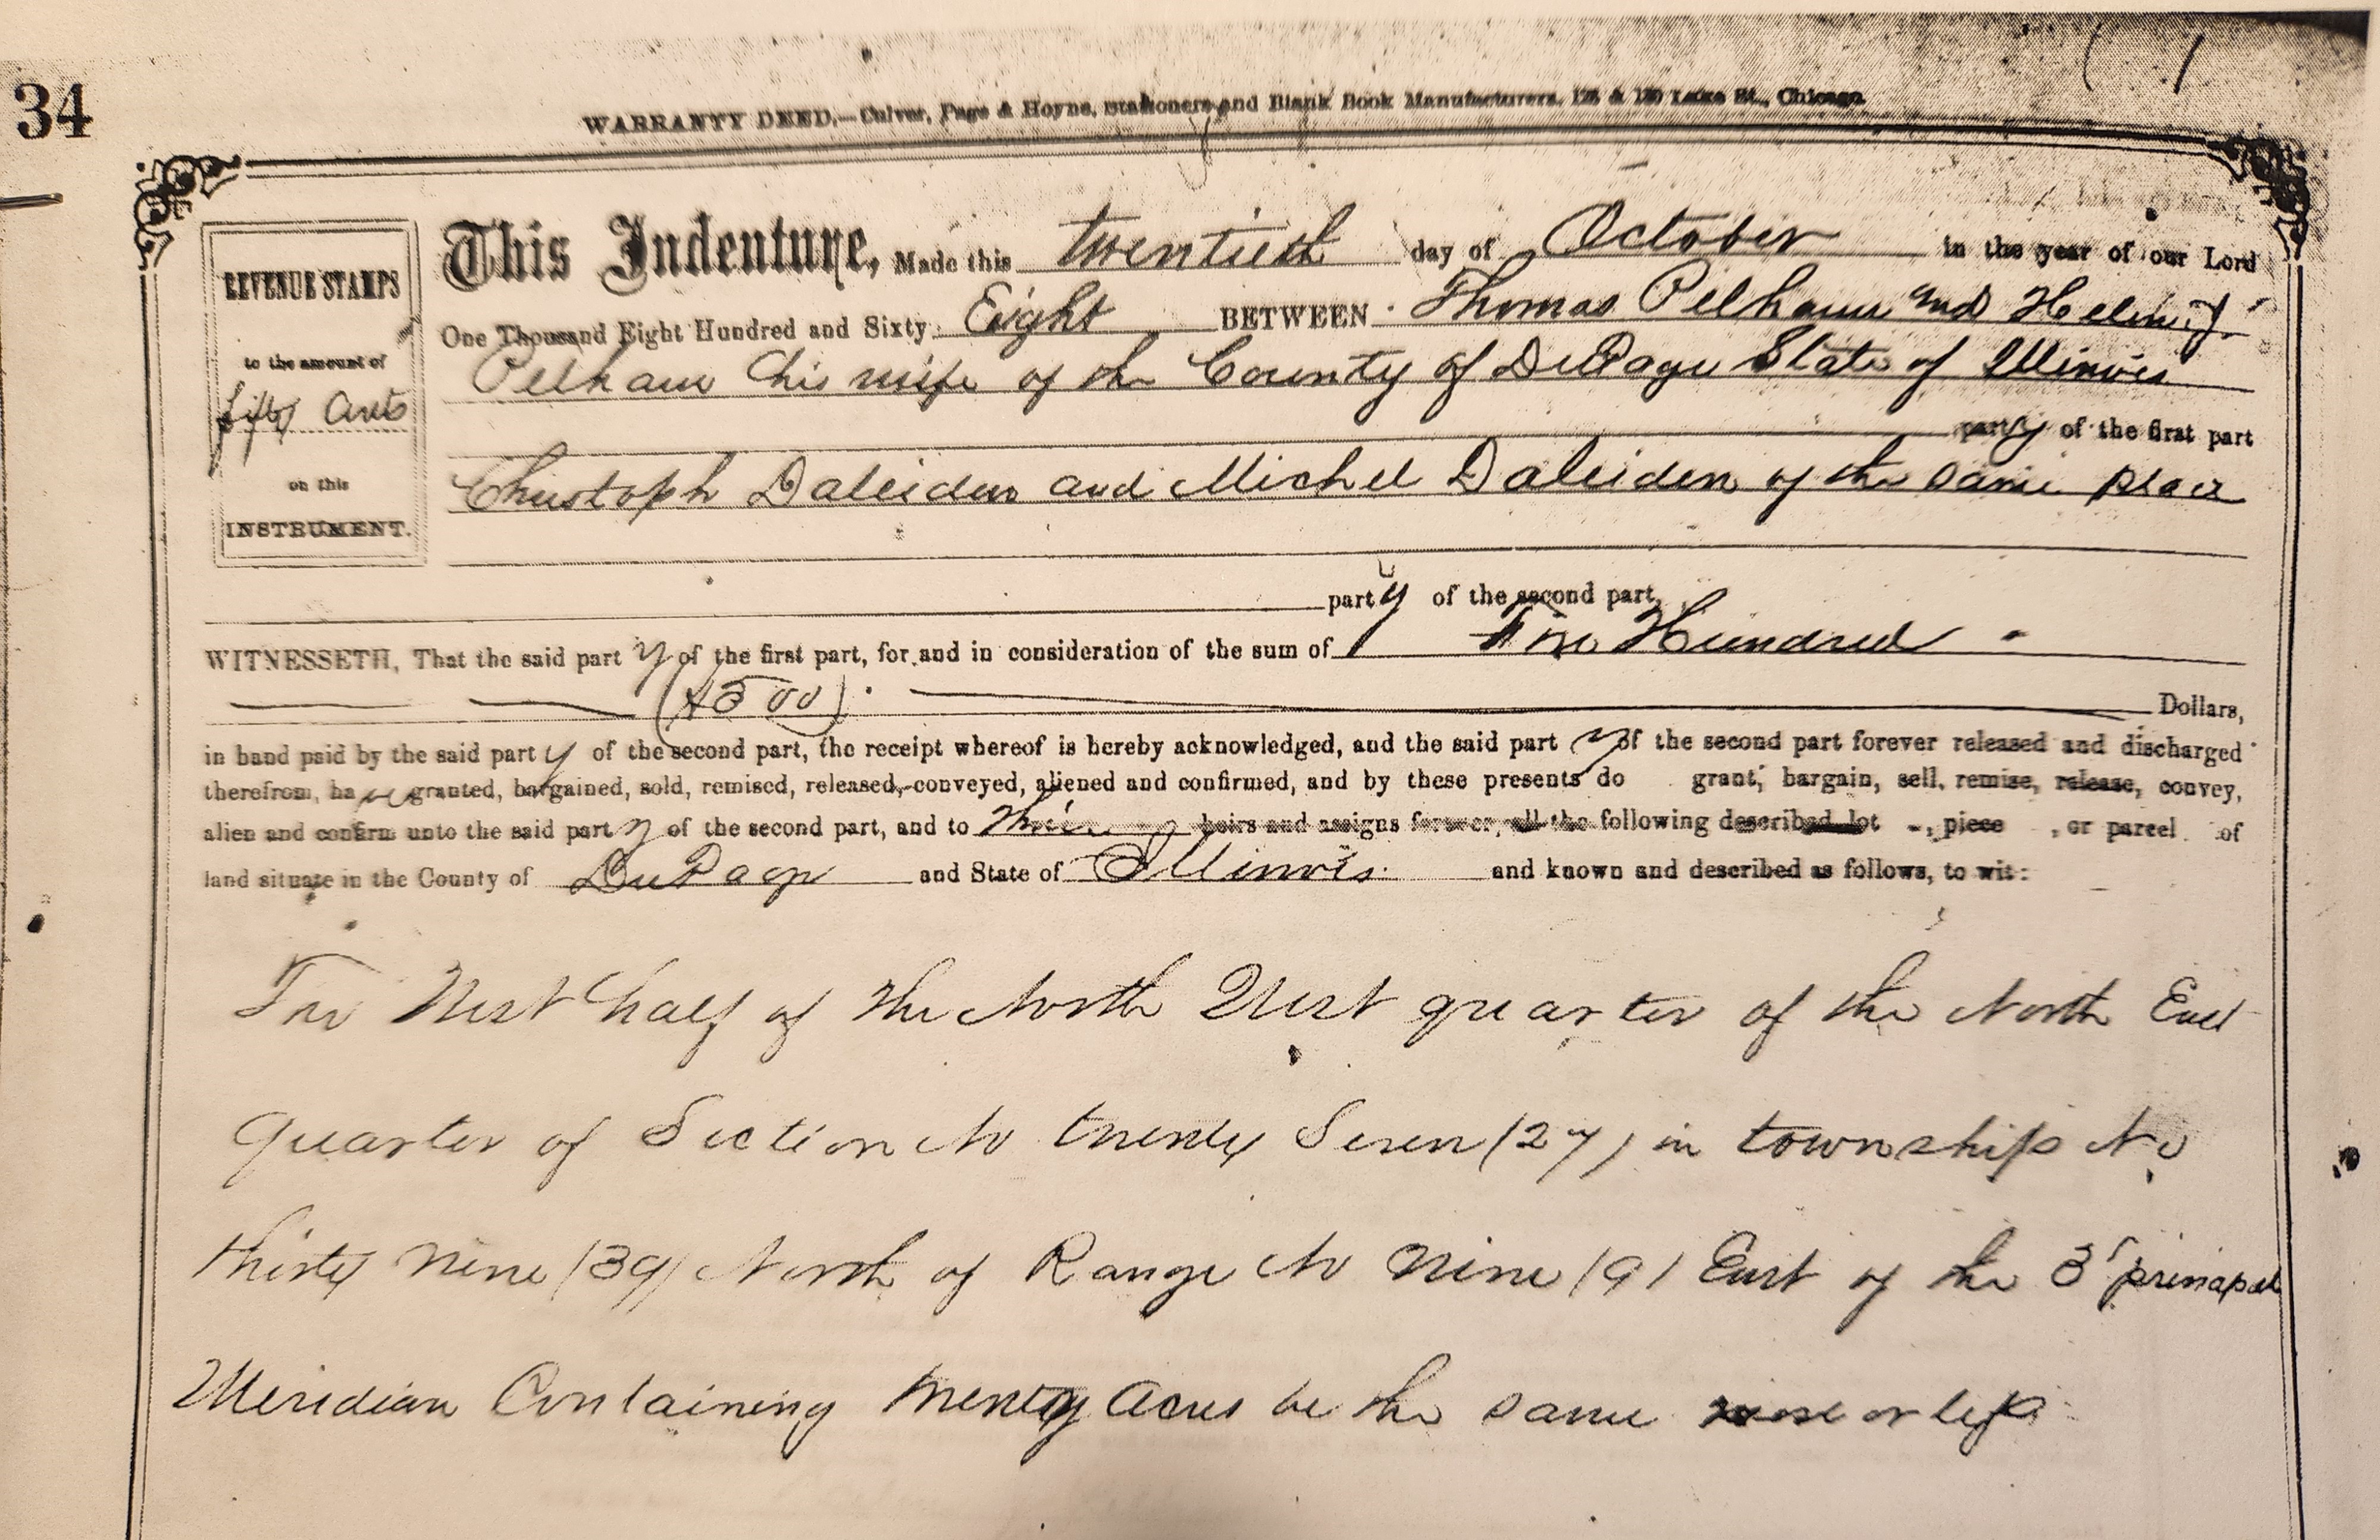 34
WARRANTY DEED.—Culver, Page & Hoyne, Stationers and Blank Book Manufacturers, Lake St., Chicago
This Indenture, Made this twentieth day of October in the year of our Lord
One Thousand Eight Hundred and Sixty Eight BETWEEN Thomas Pelham and
Pelham his wife of the County of DuPage State of Illinois
party of the first part
Christoph Daleiden and Michel Daleiden of the same place
party of the second part,
REVENUE STAMPS
to the amount of
fifty Cents
on this
INSTRUMENT.
WITNESSETH, That the said party of the first part, for and in consideration of the sum of Five Hundred
($500) Dollars,
in hand paid by the said party of the second part, the receipt whereof is hereby acknowledged, and the said party of the second part forever released and discharged
therefrom, have granted, bargained, sold, remised, released, conveyed, aliened and confirmed, and by these presents do grant, bargain, sell, remise, release, convey,
alien and confirm unto the said party of the second part, and to their heirs and assigns forever, all the following described lot , piece , or parcel of
land situate in the County of DuPage and State of Illinois. and known and described as follows, to wit:
The West half of the North West quarter of the North East
Quarter of Section No twenty Seven (27) in township No
thirty nine (39) North of Range No Nine (9) East of the 3d principal
Meridian Containing twenty Acres be the same more or less